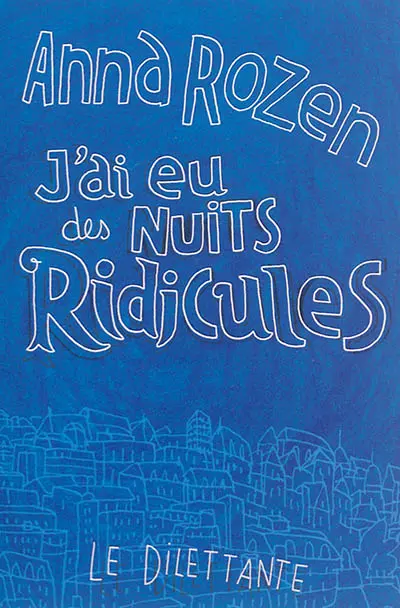 Anna Rozen
J'ai eu
des NUiTS
Ridicules
LE DiLETTANTE